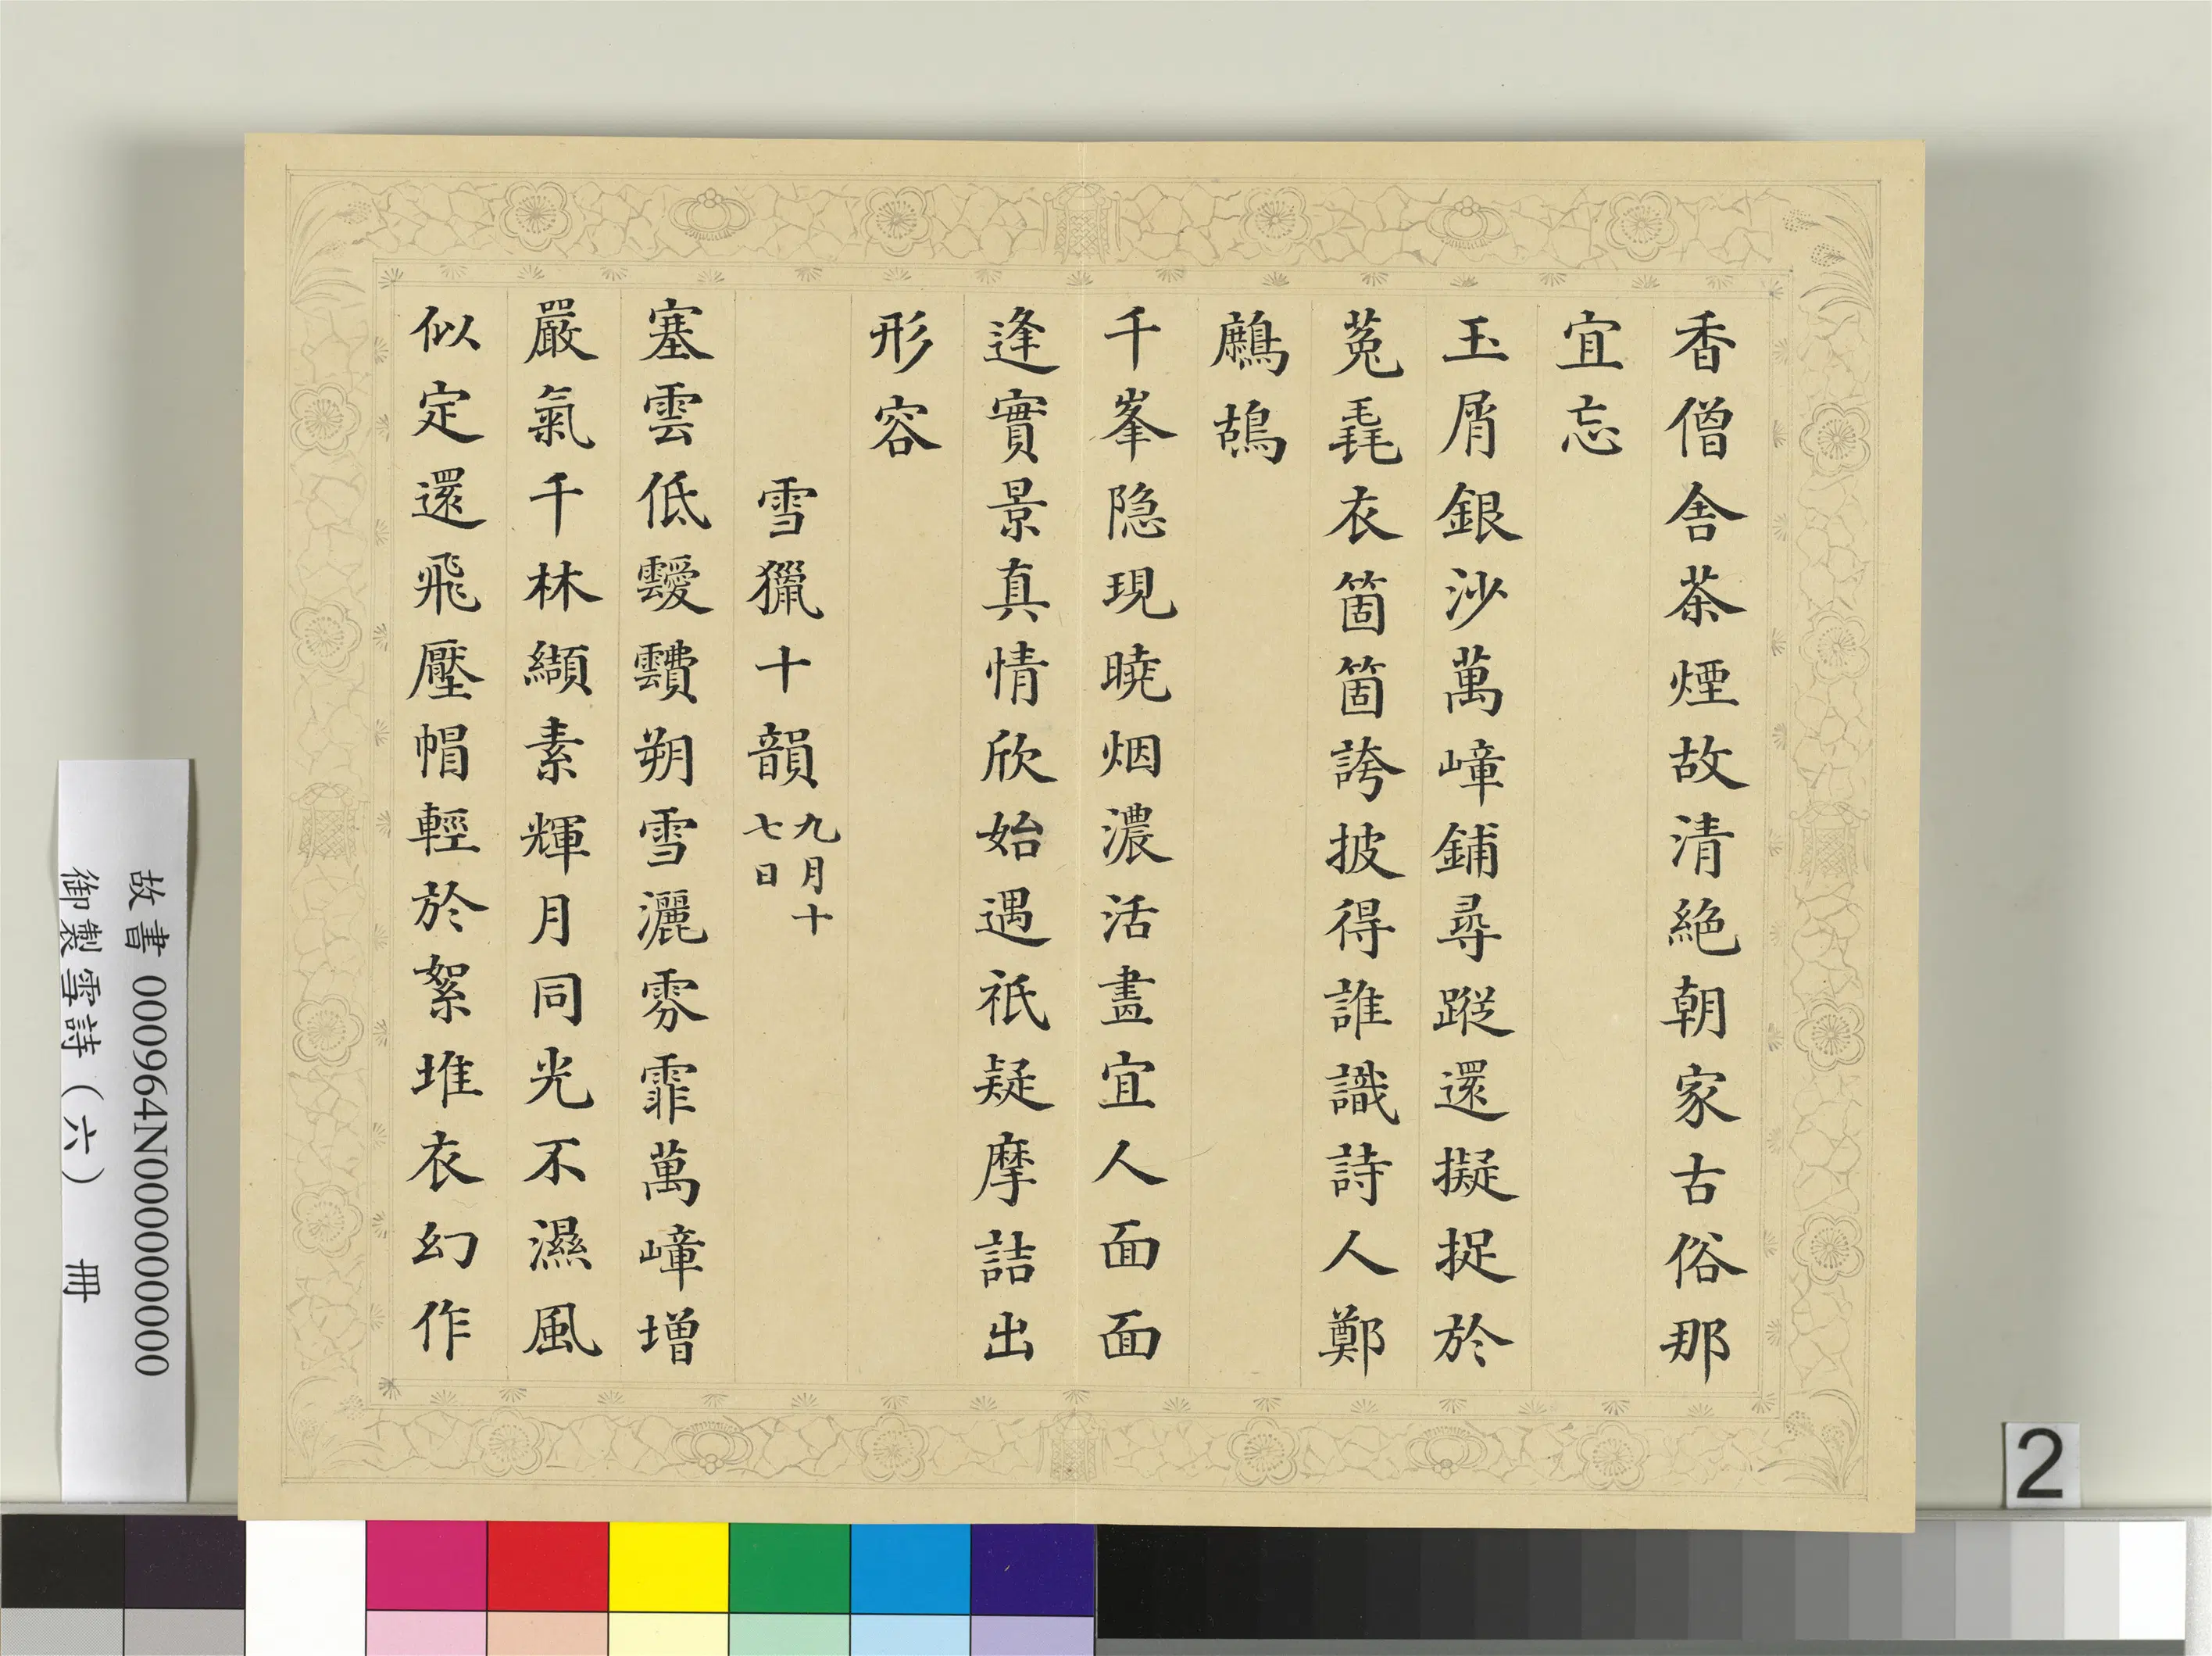 香僧舎茶煙故清絶朝家古俗那
宜忘
玉屑銀沙萬嶂鋪尋蹤還擬捉於
菟毳衣箇箇誇披得誰識詩人鄭
鷓鴣
千峯隐現曉烟濃活畫宜人面面
逢實景真情欣始遇祇疑摩詰出
形容
雪獵十韻九月十七日
塞雲低靉靅朔雪灑雰霏萬嶂增
嚴氣千林纈素輝月同光不濕風
似定還飛壓帽輕於絮堆衣幻作
故書 000964N000000000
御製雪詩（六） 冊
2